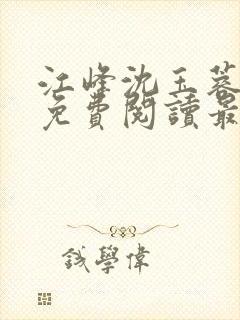 江峰沈玉蓉
免費閱讀最
錢學偉